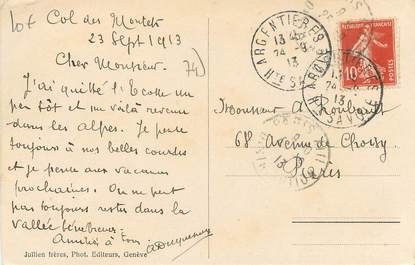 10€
Col des Montets
23 Sept 1913
74)
Cher Monsieur.
J'ai quitté l'Ecole un
peu tôt et me voilà revenu
dans les alpes. Je pense
toujours à nos belles courses
et je pense aux vacances
prochaines. On ne peut
pas toujours rester dans la
vallée
Amitiés à tous
Jullien frères, Phot. Editeurs, Genève
ARGENTIERES
13
24 -9
13
Hte SAVOIE
REPUBLIQUE FRANÇAISE
10
POSTES
Monsieur A
68 Avenue de Choisy
Paris
PARIS